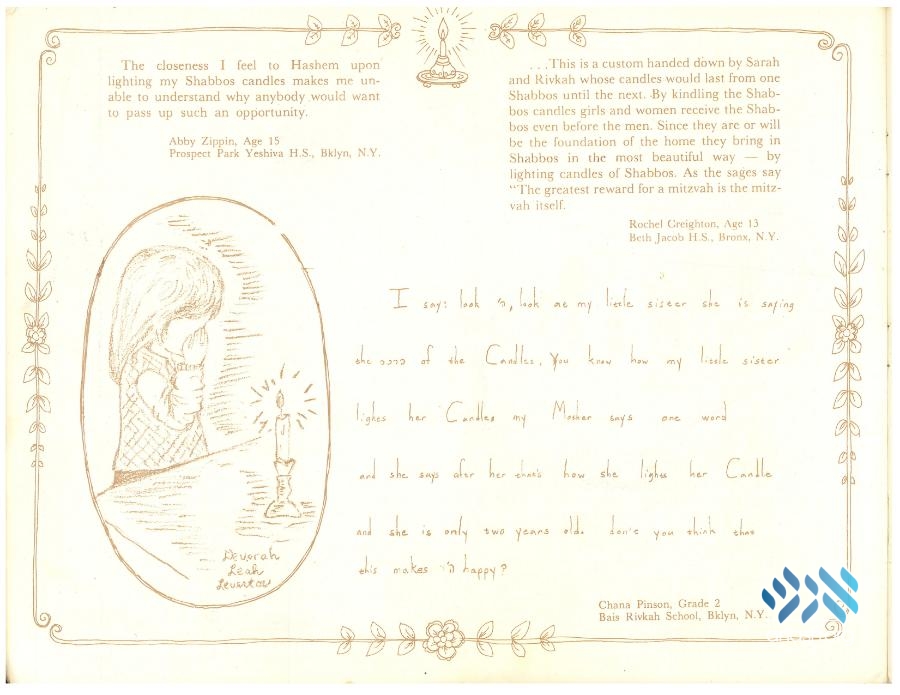 The closeness I feel to Hashem upon
lighting my Shabbos candles makes me un-
able to understand why anybody would want
to pass up such an opportunity.
Abby Zippin, Age 15
Prospect Park Yeshiva H.S., Bklyn, N.Y.
. . .This is a custom handed down by Sarah
and Rivkah whose candles would last from one
Shabbos until the next. By kindling the Shab-
bos candles girls and women receive the Shab-
bos even before the men. Since they are or will
be the foundation of the home they bring in
Shabbos in the most beautiful way — by
lighting candles of Shabbos. As the sages say
"The greatest reward for a mitzvah is the mitz-
vah itself.
Rochel Greighton, Age 13
Beth Jacob H.S., Bronx, N.Y.
I say: look 'ה, look at my little sister she is saying
the ברכה of the Candles. You know how my little sister
lights her Candles my Mother says one word
and she says after her that's how she lights her Candle
and she is only two years old. don't you think that
this makes 'ה happy?
Chana Pinson, Grade 2
Bais Rivkah School, Bklyn, N.Y.
Devorah
Leah
Levertov
אנש